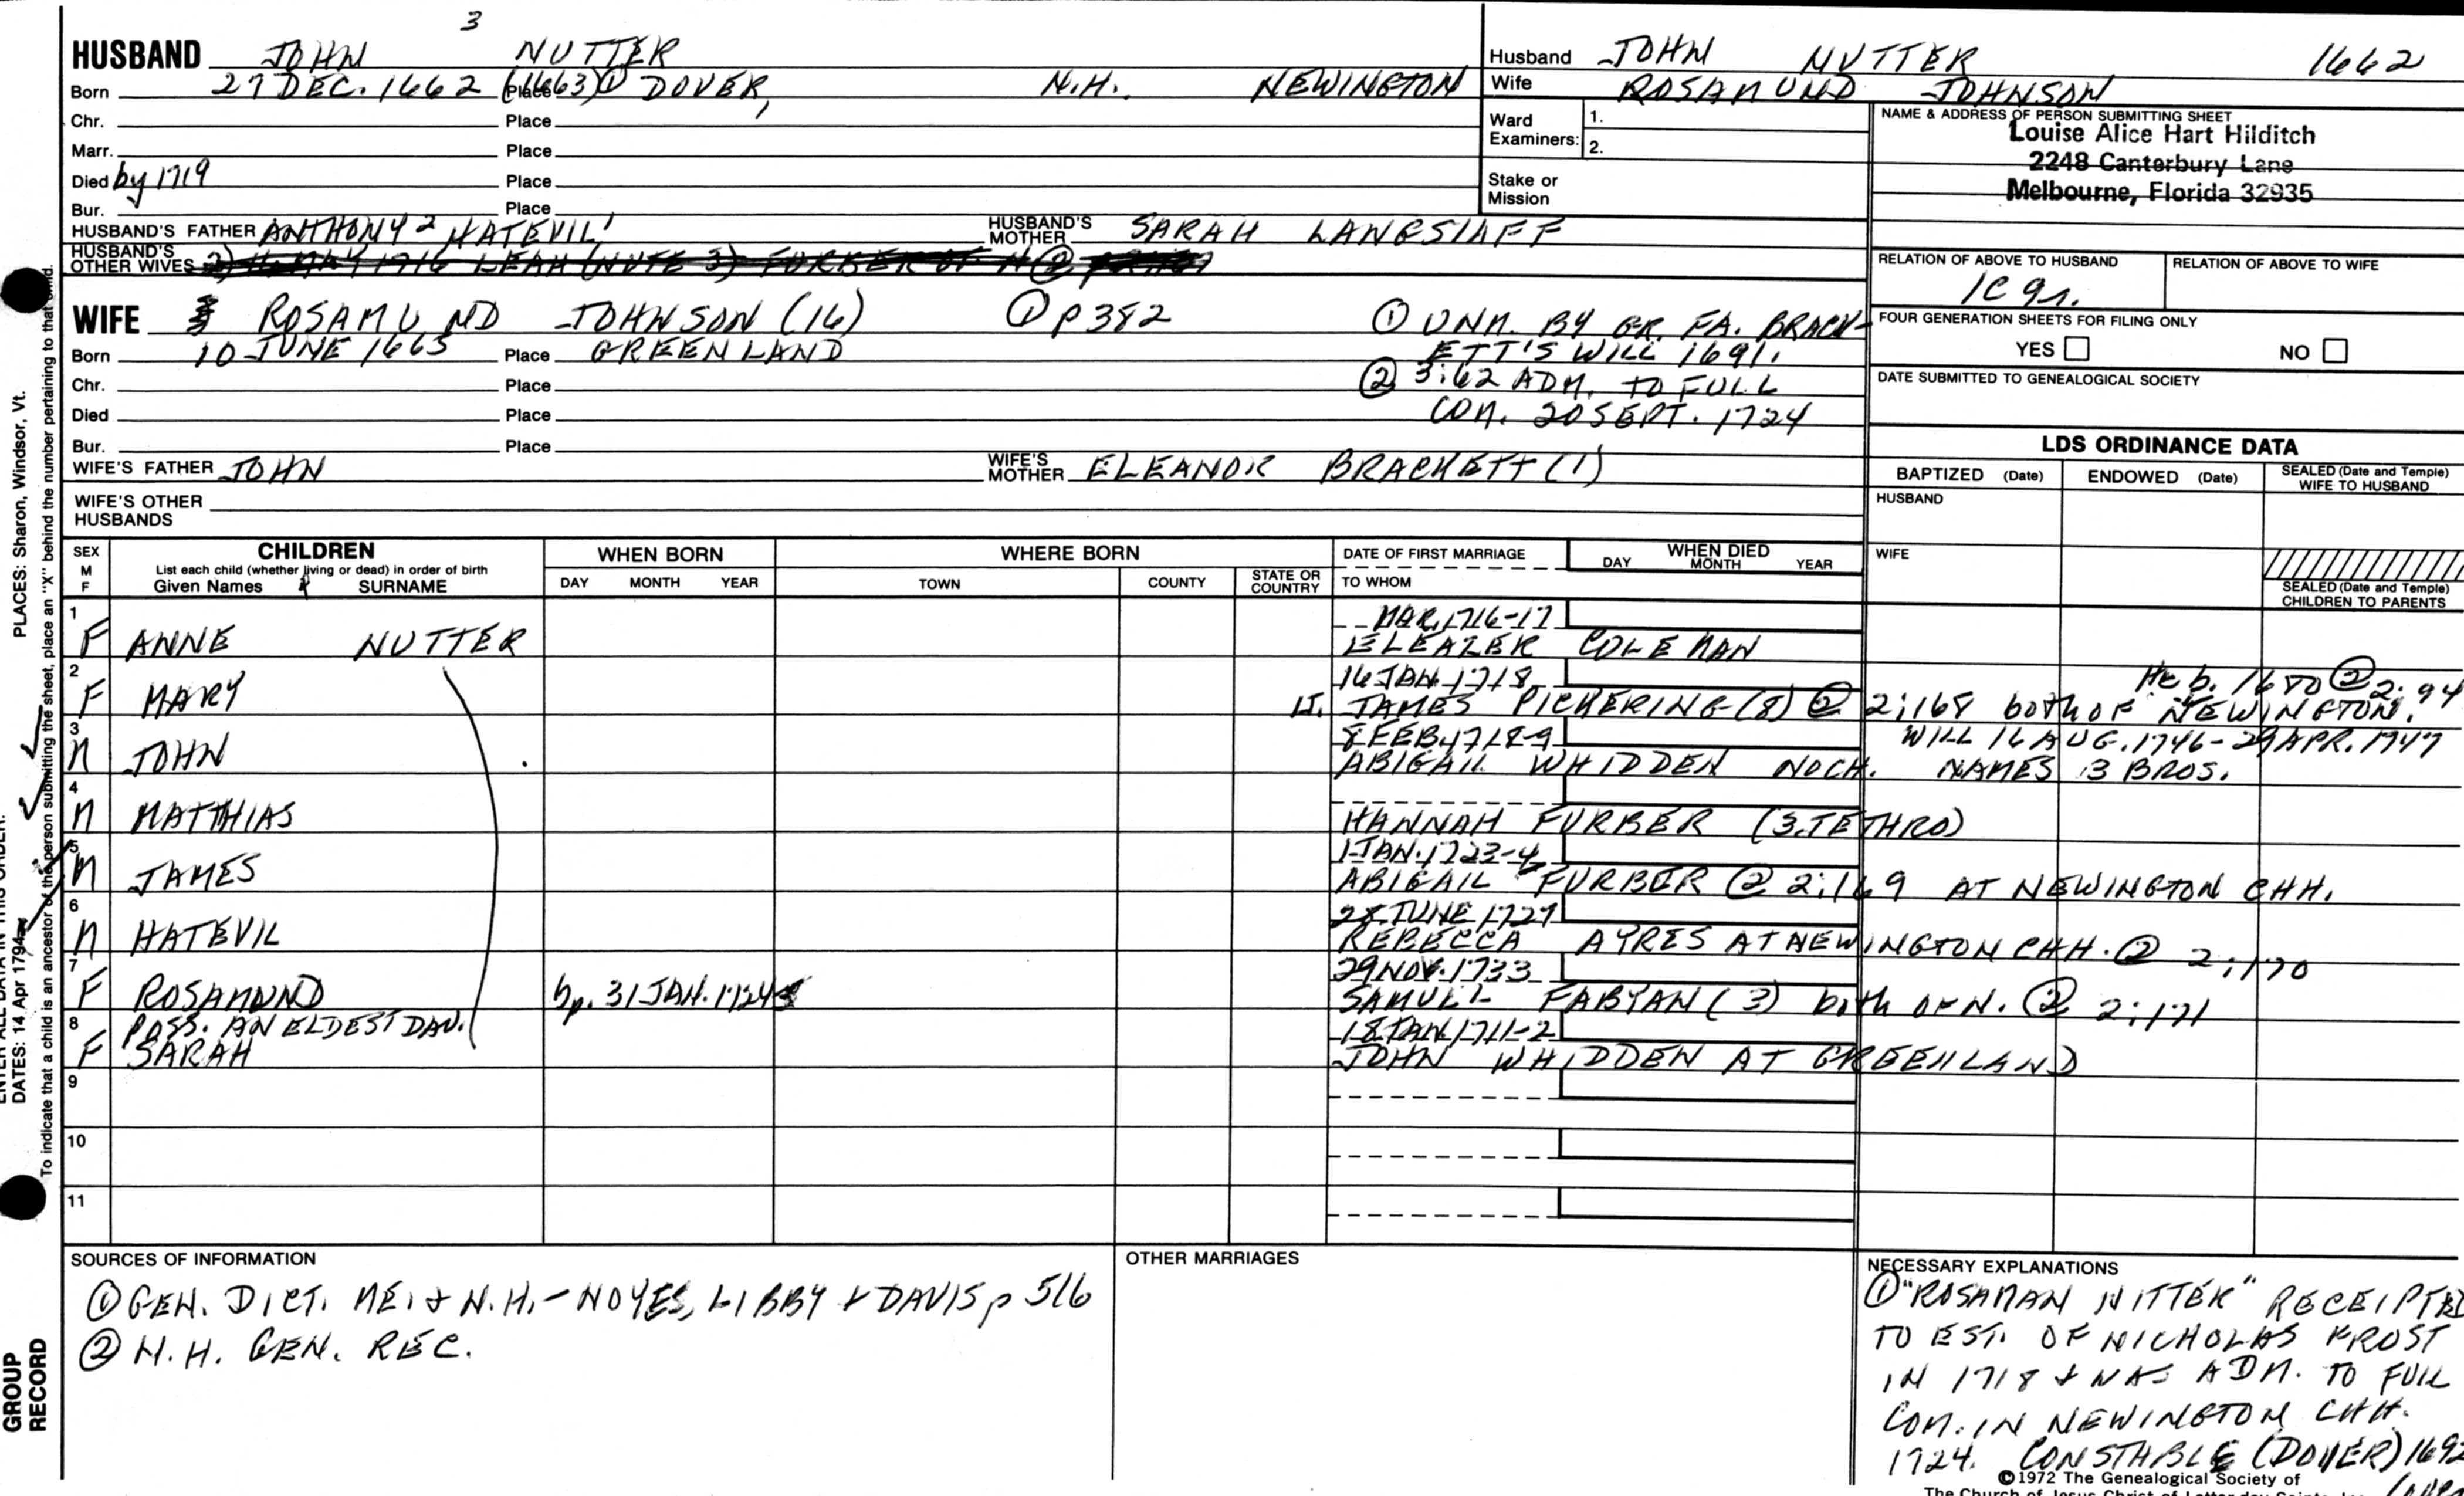 3
HUSBAND JOHN NUTTER
Born 27 DEC. 1662 (1663) ① Place DOVER, N.H. NEWINGTON
Chr. Place
Marr. Place
Died by 1719 Place
Bur. Place
HUSBAND'S FATHER ANTHONY 2 HATEVIL 1 HUSBAND'S MOTHER SARAH LANGSTAFF
HUSBAND'S OTHER WIVES 2) MAY 1716 LEAH (NUTE 3) FURBER OF N ②
WIFE ROSAMUND JOHNSON (16) ① P 382
Born 10 JUNE 1665 Place GREENLAND
Chr. Place
Died Place
Bur. Place
① UNM. BY GR. FA. BRACK-
ETT'S WILL 1691.
② 3:62 ADM. TO FULL
COM. 20 SEPT. 1724
WIFE'S FATHER JOHN WIFE'S MOTHER ELEANOR BRACKETT (1)
WIFE'S OTHER HUSBANDS
Husband JOHN NUTTER 1662
Wife ROSAMUND JOHNSON
Ward Examiners: 1.
2.
Stake or Mission
NAME & ADDRESS OF PERSON SUBMITTING SHEET
Louise Alice Hart Hilditch
2248 Canterbury Lane
Melbourne, Florida 32935
RELATION OF ABOVE TO HUSBAND RELATION OF ABOVE TO WIFE
1C 9r.
FOUR GENERATION SHEETS FOR FILING ONLY
YES NO
DATE SUBMITTED TO GENEALOGICAL SOCIETY
LDS ORDINANCE DATA
BAPTIZED (Date) ENDOWED (Date) SEALED (Date and Temple) WIFE TO HUSBAND
HUSBAND
WIFE
SEALED (Date and Temple) CHILDREN TO PARENTS
SEX M F
CHILDREN
List each child (whether living or dead) in order of birth
Given Names SURNAME
WHEN BORN
DAY MONTH YEAR
WHERE BORN
TOWN COUNTY STATE OR COUNTRY
DATE OF FIRST MARRIAGE
TO WHOM
WHEN DIED
DAY MONTH YEAR
1 MAR. 1716-17
F ANNE NUTTER ELEAZER COLEMAN
2 16 JAN. 1718 He b. 1680 ② 2:94
F MARY JAMES PICKERING (8) ② 2:168 both OF NEWINGTON.
3 8 FEB. 1718-9 WILL 16 AUG. 1746 - 29 APR. 1747
M JOHN ABIGAIL WHIDDEN NO CH. NAMES 3 BROS.
4
M MATTHIAS HANNAH FURBER (3. JETHRO)
5 1 JAN. 1723-4
M JAMES ABIGAIL FURBER ② 2:169 AT NEWINGTON CHH.
6 28 JUNE 1727
M HATEVIL REBECCA AYRES AT NEWINGTON CHH. ② 2:170
7 29 NOV. 1733
F ROSAMUND bp. 31 JAN. 1724 SAMUEL FABYAN (3) both OF N. ② 2:171
8 POSS. AN ELDEST DAU. 18 JAN 1711-2
F SARAH JOHN WHIDDEN AT GREENLAND
9
10
11
SOURCES OF INFORMATION
① GEN. DICT. ME. & N.H. - NOYES, LIBBY & DAVIS p 516
② N.H. GEN. REC.
OTHER MARRIAGES
NECESSARY EXPLANATIONS
① "ROSAMAN NITTER" RECEIPTED
TO EST. OF NICHOLAS FROST
IN 1718 & WAS ADM. TO FULL
COM. IN NEWINGTON CHH.
1724. CONSTABLE (DOVER) 1692
©1972 The Genealogical Society of
The Church of Jesus Christ of Latter-day Saints, Inc.
PLACES: Sharon, Windsor, Vt.
ENTER ALL DATA IN THIS ORDER:
DATES: 14 Apr 1794
To indicate that a child is an ancestor of the person submitting the sheet, place an "X" behind the number pertaining to that child.
GROUP
RECORD